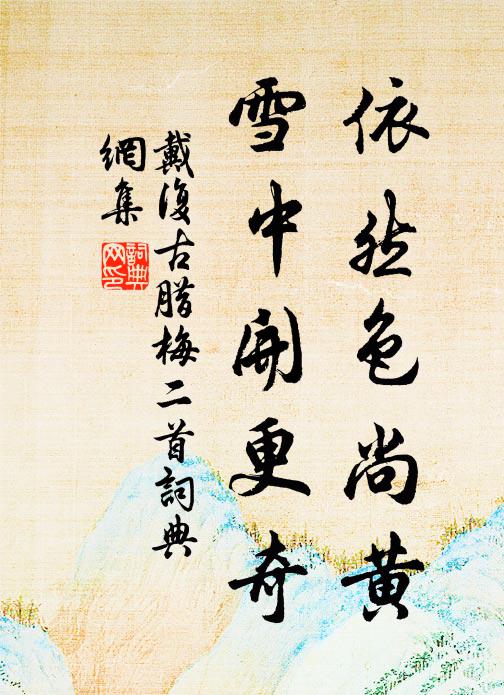 依然色尚黄
雪中開更奇
戴復古腊梅二首詞典
網集
詞典
网印